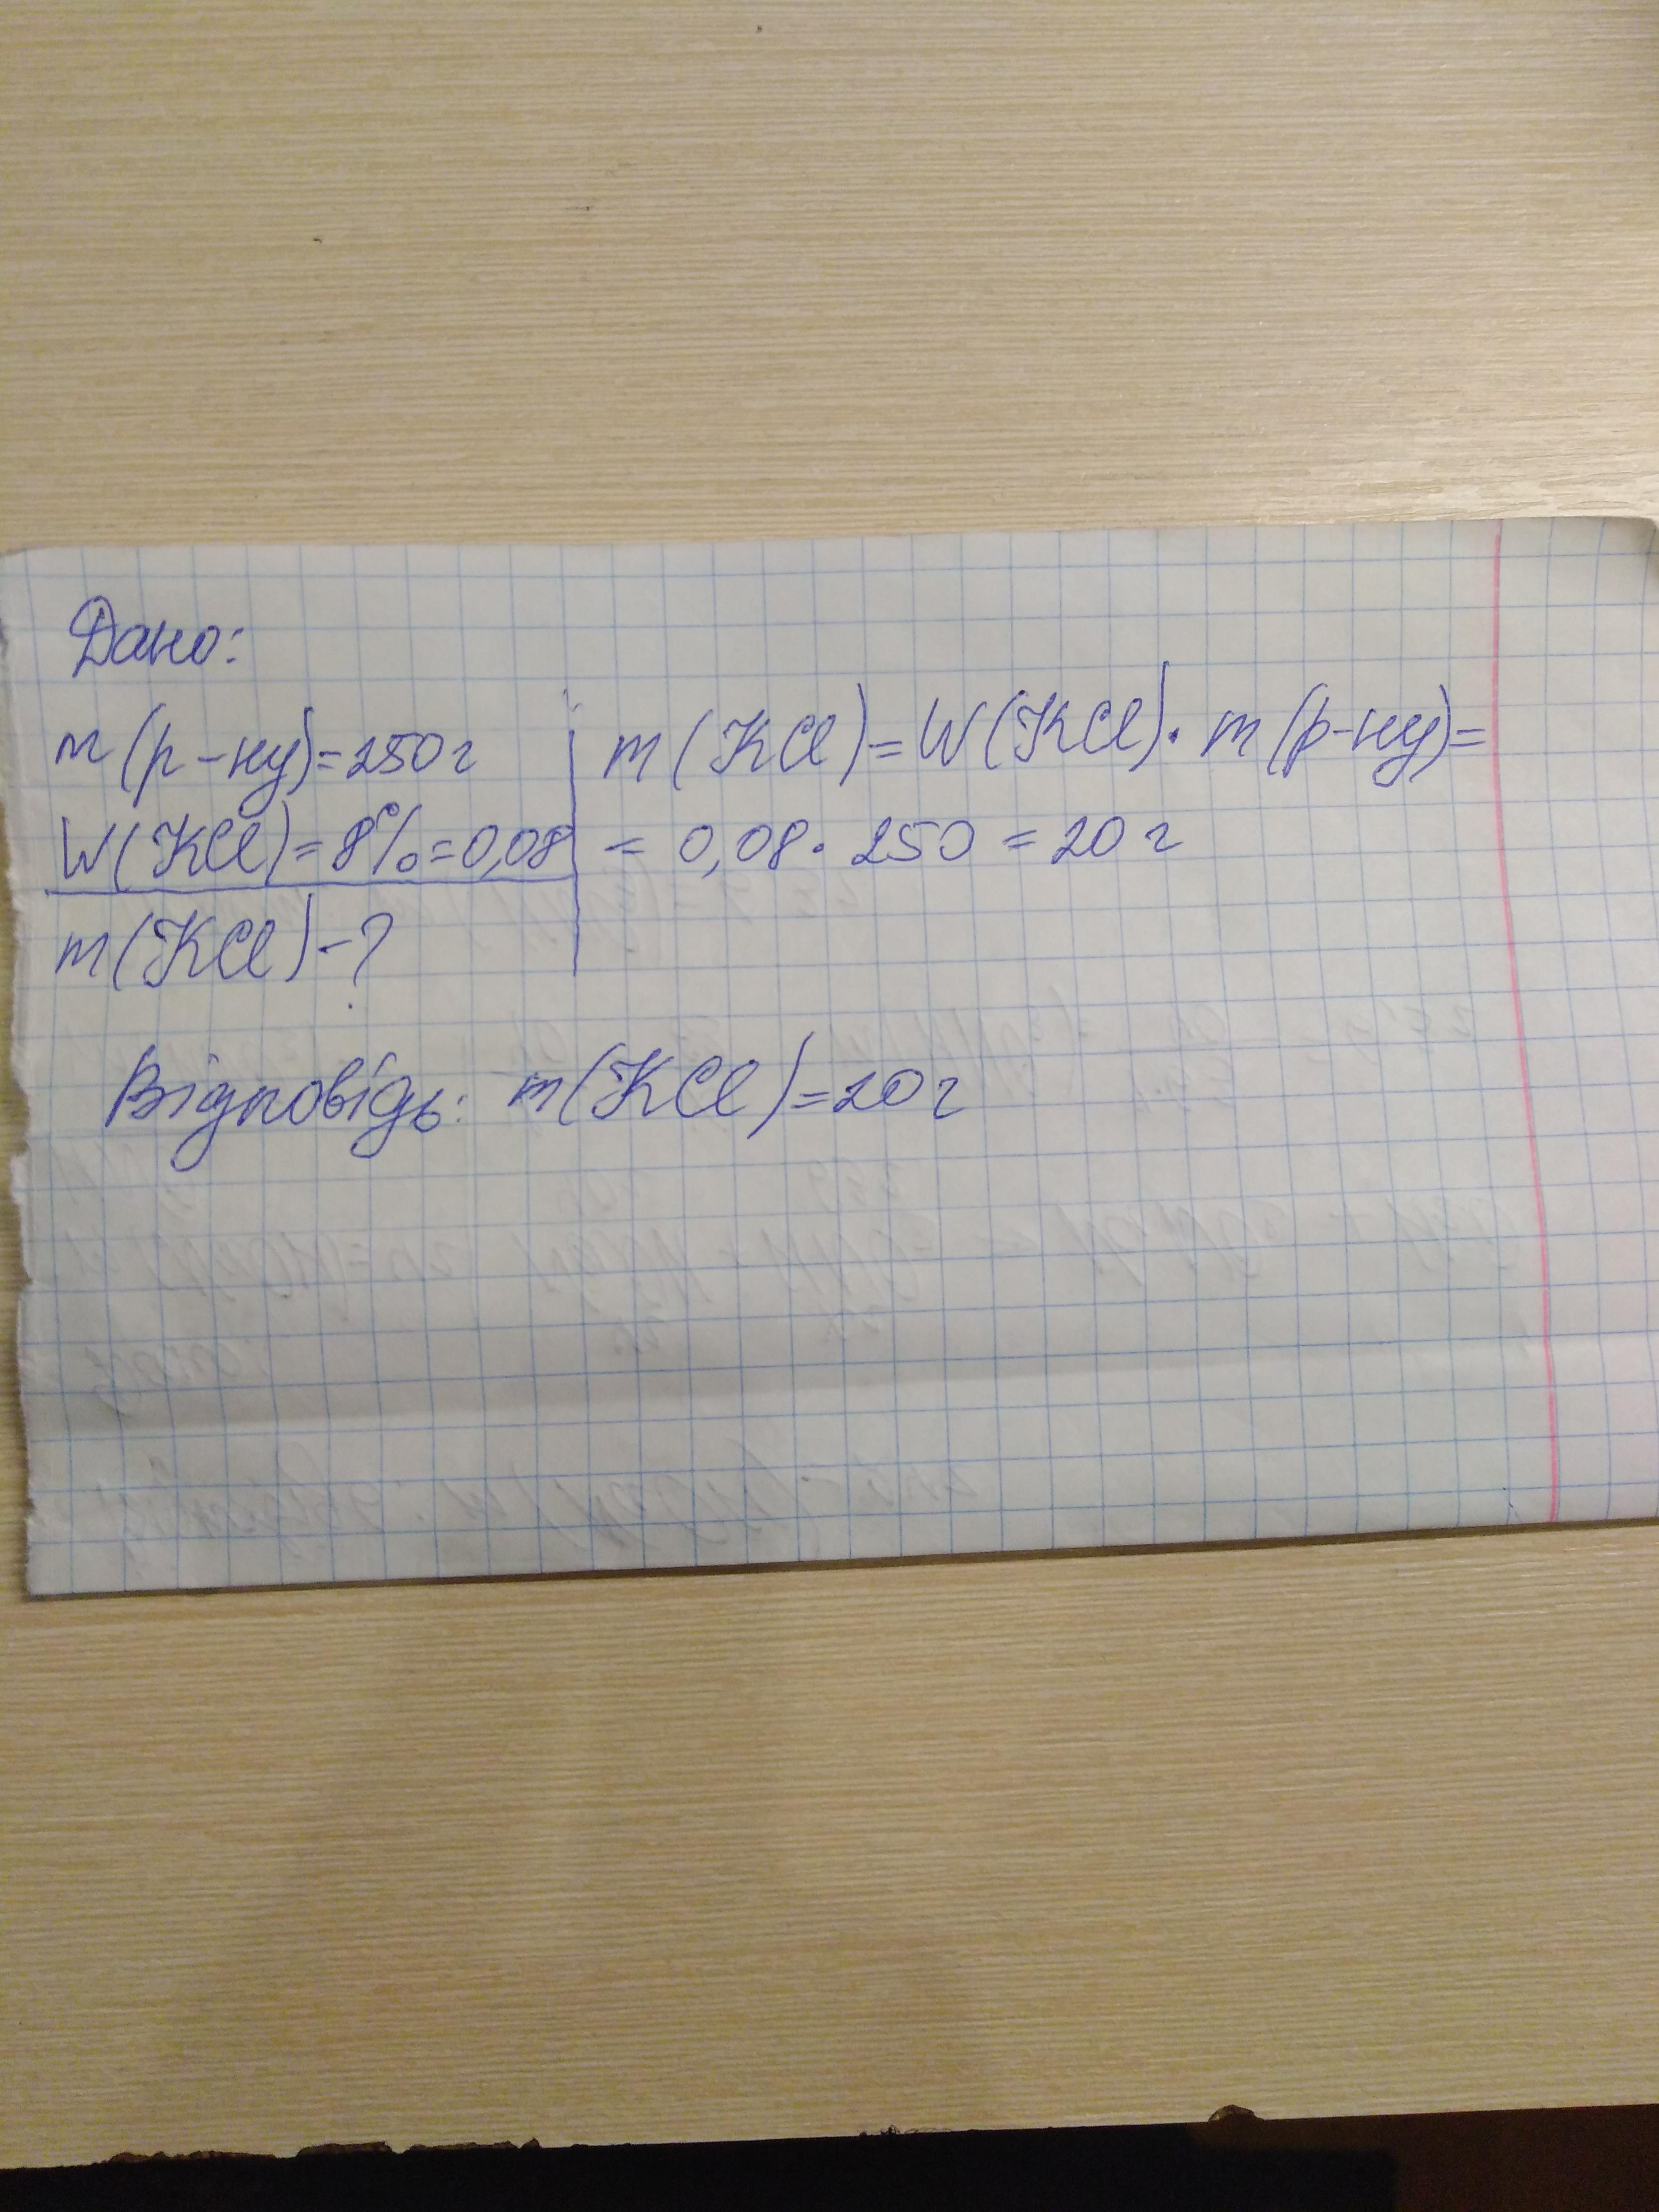 Дано:
m(р-ну)=250г
W(KCl)=8%=0,08
m(KCl)-?
m(KCl)=W(KCl)·m(р-ну)=
=0,08·250=20г
Відповідь: m(KCl)=20г